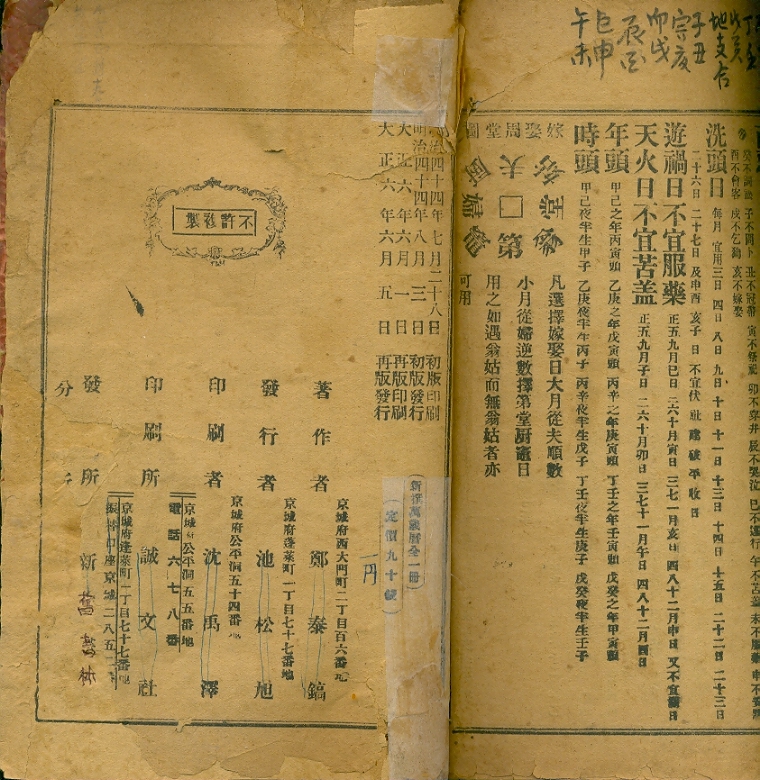 子丑
卯戌
巳申
午未
洗頭日 每月 宜用三日 四日 八日 九日 十日 十一日 十三日 十四日 十五日 二十二日 二十三日
二十六日 二十七日 及申酉 亥子 日 不宜伏 社 建 破 平 收 日
遊禍日不宜服藥 正五九月巳日 二六十月寅日 三七一月亥日 四八十二月申日 又不宜
天火日 不宜苫盖 正五九月子日 二六十月卯日 三七十一月午日 四八十二月酉日
年頭 甲己之年丙寅頭 乙庚之年戊寅頭 丙辛之年庚寅頭 丁壬之年壬寅頭 戊癸之年甲寅頭
時頭 甲己夜半生甲子 乙庚夜半生丙子 丙辛夜半生戊子 丁壬夜半生庚子 戊癸夜半生壬子
嫁娶周堂圖
夫
第
凡選擇嫁娶日大月從夫順數
小月從婦逆數擇第堂厨竈日
用之如遇翁姑而無翁姑者亦
可用
明治四十四年七月二十八日 初版印刷
明治四十四年八月三日 初版發行
大正六年六月一日 再版印刷
大正六年六月五日 再版發行
不許複製
新撰萬歲曆全一冊
(定價九十錢)
一円
著作者 京城府西大門町二丁目百六番地 鄭泰鎬
發行者 京城府蓬萊町一丁目七十七番地 池松旭
印刷者 京城府公平洞五十四番地 沈禹澤
印刷所 京城府公平洞五五番地 誠文社
電話六七八番
發所 京城府蓬萊町一丁目七十七番地 新舊書林
振替口座京城二八五
分